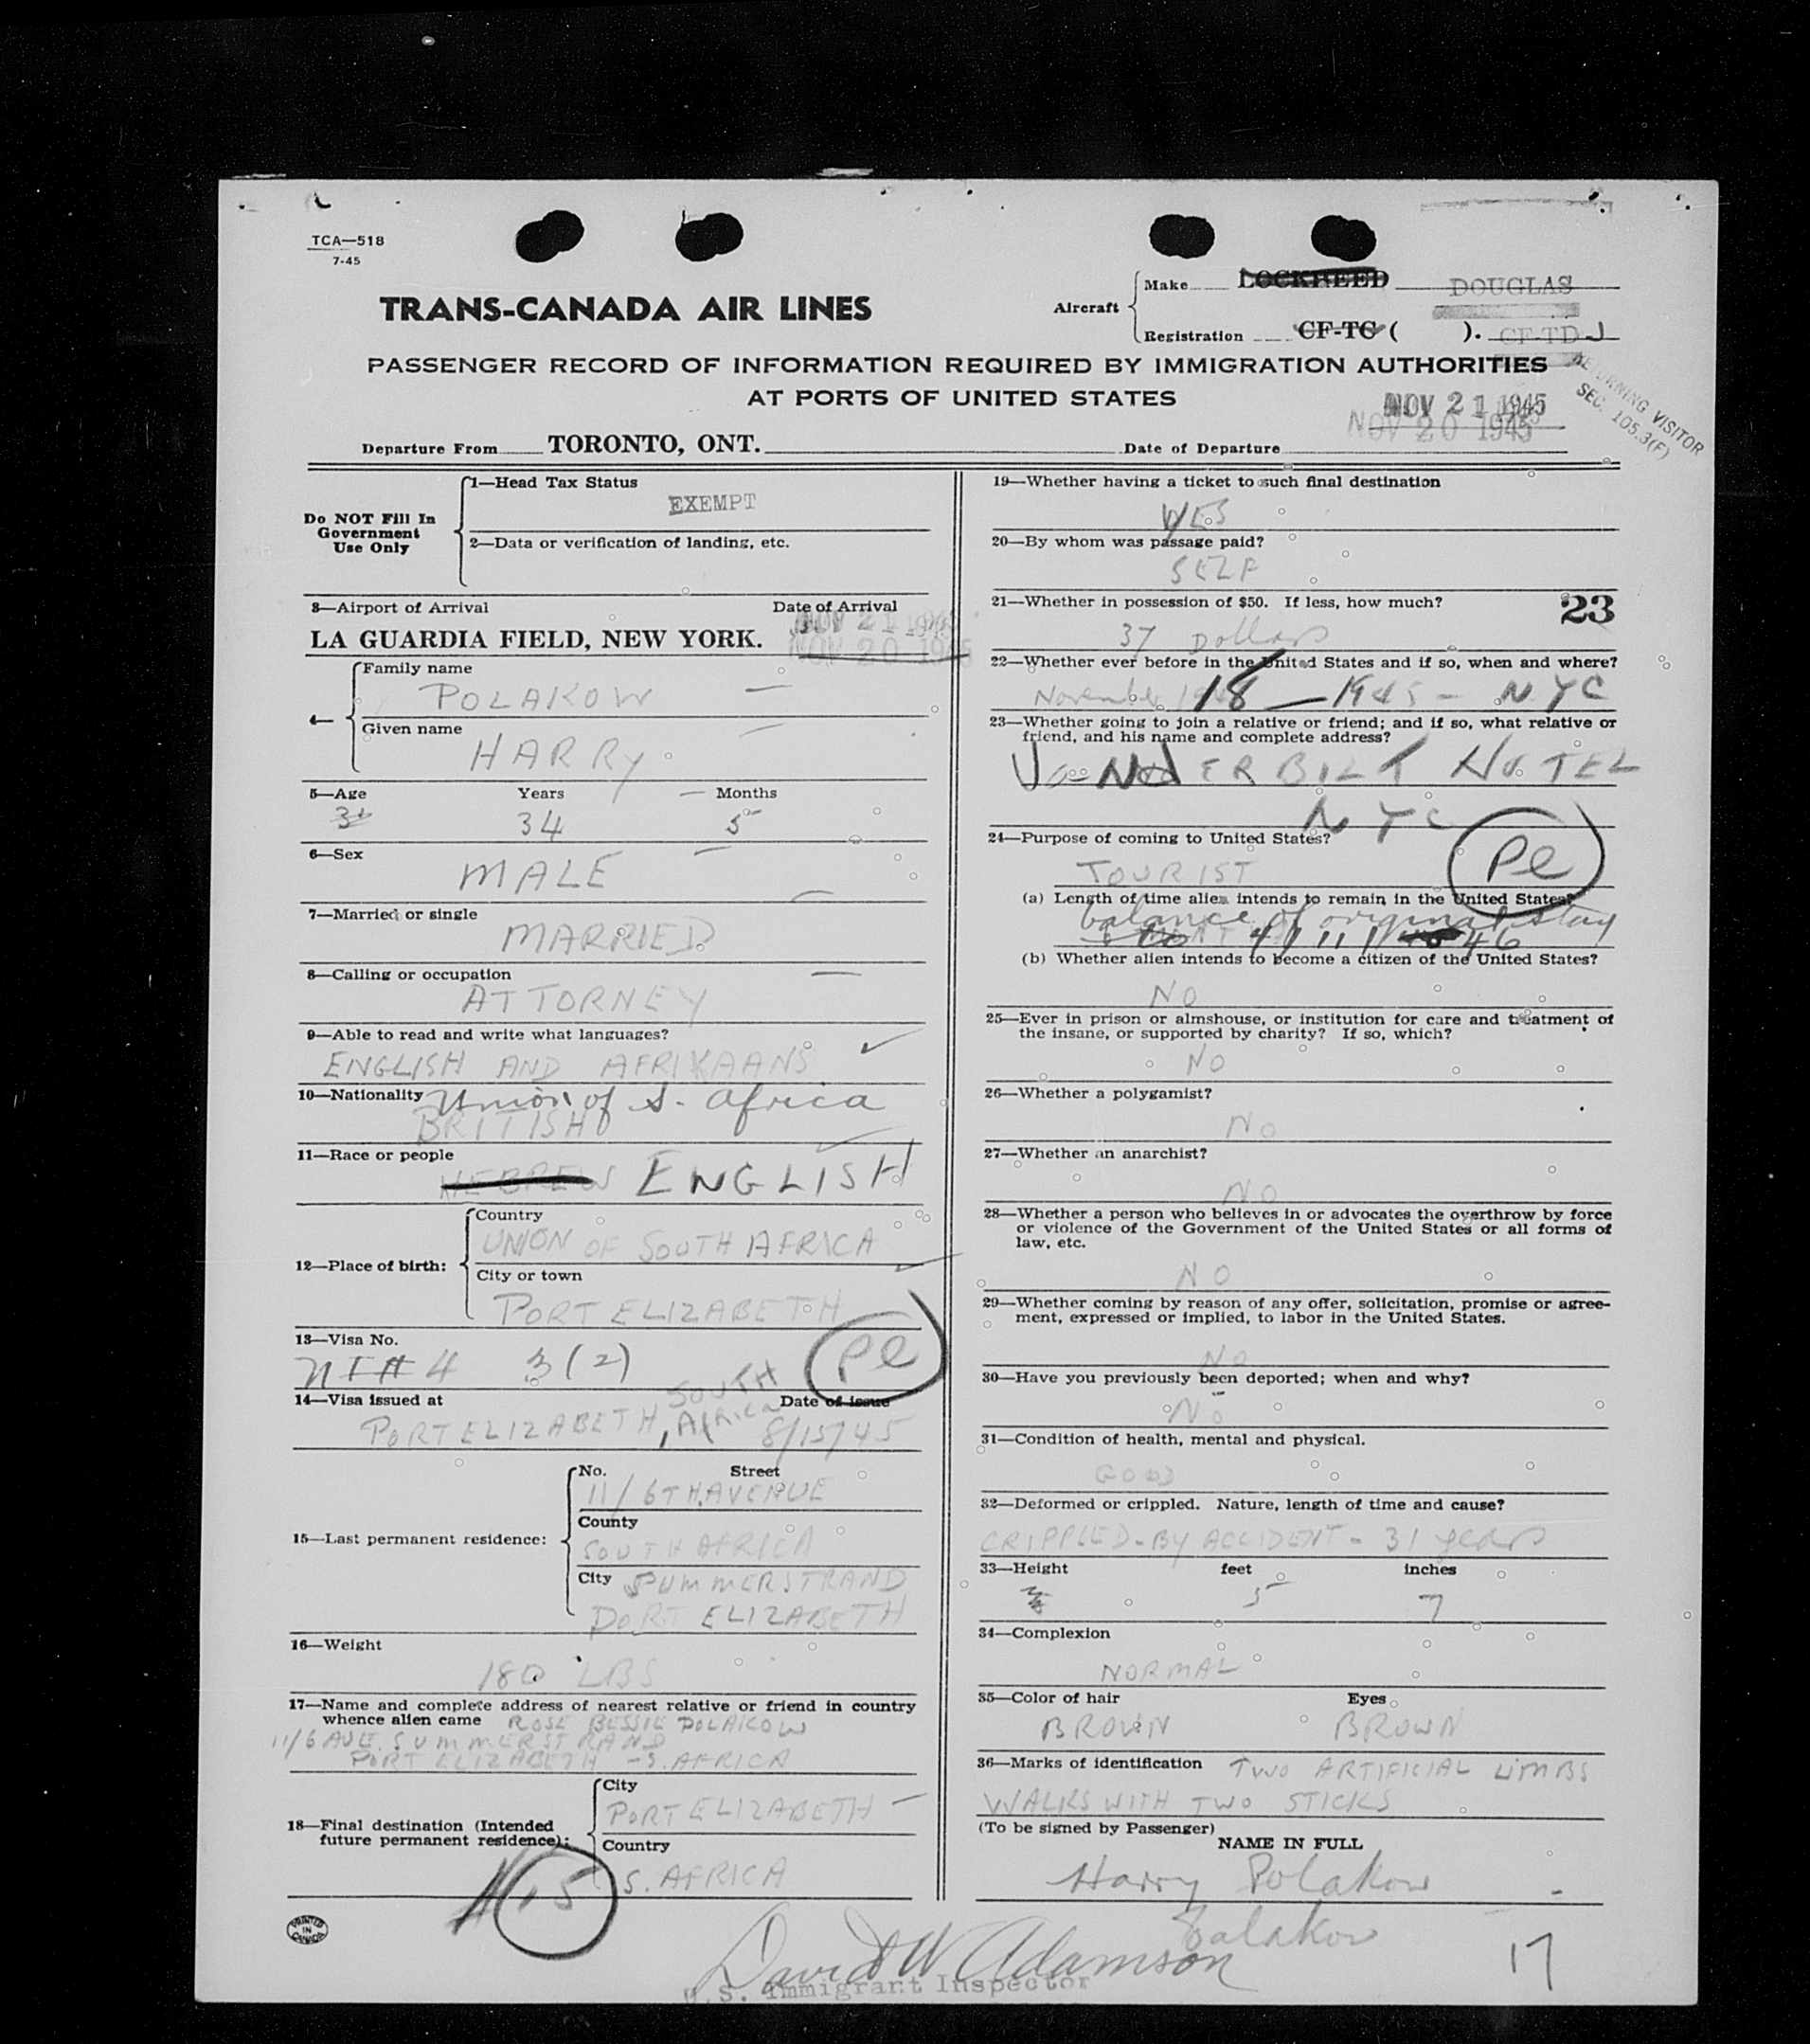 TCA—518
7-45
TRANS-CANADA AIR LINES
Aircraft
Make LOCKHEED DOUGLAS
Registration CF-TC ( ). CF-TD J
PASSENGER RECORD OF INFORMATION REQUIRED BY IMMIGRATION AUTHORITIES
AT PORTS OF UNITED STATES
RETURNING VISITOR
SEC. 105.3(F)
NOV 21 1945
NOV 20 1945
Departure From TORONTO, ONT. Date of Departure
Do NOT Fill In
Government
Use Only
1—Head Tax Status
EXEMPT
2—Data or verification of landing, etc.
3—Airport of Arrival Date of Arrival
NOV 21 1945
LA GUARDIA FIELD, NEW YORK. NOV 20 1945
4—
Family name
POLAKOW
Given name
HARRY
5—Age Years Months
34 5
6—Sex
MALE
7—Married or single
MARRIED
8—Calling or occupation
ATTORNEY
9—Able to read and write what languages?
ENGLISH AND AFRIKAANS
10—Nationality Union of S. Africa
BRITISH
11—Race or people
HEBREW ENGLISH
12—Place of birth:
Country
UNION OF SOUTH AFRICA
City or town
PORT ELIZABETH
13—Visa No.
4 3(2) Pe
14—Visa issued at Date of issue
PORT ELIZABETH, SOUTH Africa 8/15/45
15—Last permanent residence:
No. Street
11/6TH. AVENUE
County
SOUTH AFRICA
City SUMMERSTRAND
PORT ELIZABETH
16—Weight
180 LBS
17—Name and complete address of nearest relative or friend in country
whence alien came ROSE BESSIE POLAKOW
11/6 AVE. SUMMERSTRAND
PORT ELIZABETH - S. AFRICA
18—Final destination (Intended
future permanent residence):
City
PORT ELIZABETH
Country
S. AFRICA
PRINTED
IN
CANADA
19—Whether having a ticket to such final destination
YES
20—By whom was passage paid?
SELF
21—Whether in possession of $50. If less, how much? 23
37 Dollars
22—Whether ever before in the United States and if so, when and where?
November 18 — 1945 - NYC
23—Whether going to join a relative or friend; and if so, what relative or
friend, and his name and complete address?
VANDERBILT HOTEL
NYC
24—Purpose of coming to United States?
TOURIST Pe
(a) Length of time alien intends to remain in the United States?
balance of original stay
4/11/46
(b) Whether alien intends to become a citizen of the United States?
NO
25—Ever in prison or almshouse, or institution for care and treatment of
the insane, or supported by charity? If so, which?
NO
26—Whether a polygamist?
No
27—Whether an anarchist?
NO
28—Whether a person who believes in or advocates the overthrow by force
or violence of the Government of the United States or all forms of
law, etc.
NO
29—Whether coming by reason of any offer, solicitation, promise or agree-
ment, expressed or implied, to labor in the United States.
NO
30—Have you previously been deported; when and why?
No
31—Condition of health, mental and physical.
GOOD
32—Deformed or crippled. Nature, length of time and cause?
CRIPPLED - BY ACCIDENT - 31 years
33—Height feet inches
5 7
34—Complexion
NORMAL
35—Color of hair Eyes
BROWN BROWN
36—Marks of identification TWO ARTIFICIAL LIMBS
WALKS WITH TWO STICKS
(To be signed by Passenger)
NAME IN FULL
Harry Polakow
Polakow
David W Adamson
U.S. Immigrant Inspector
17